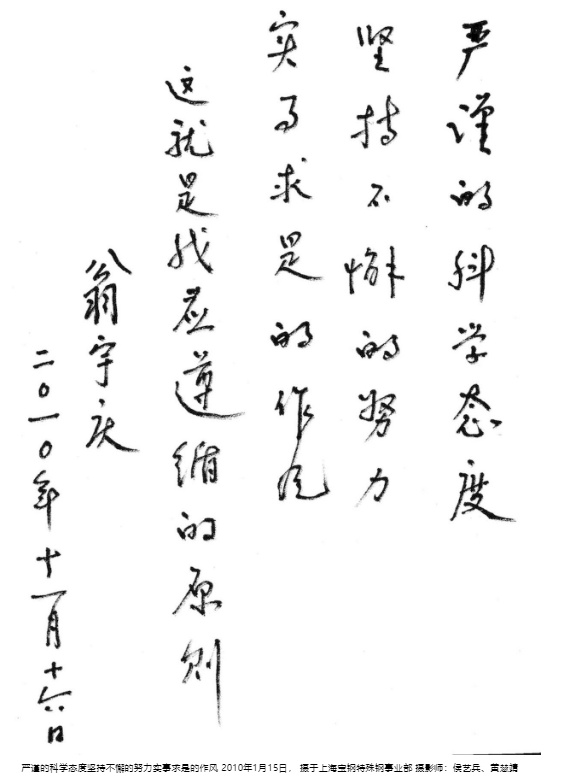 严谨的科学态度
坚持不懈的努力
实事求是的作风
这就是我应遵循的原则
翁宇庆
二〇一〇年十一月十六日
严谨的科学态度坚持不懈的努力实事求是的作风 2010年1月15日， 摄于上海宝钢特殊钢事业部 摄影师：侯艺兵、黄